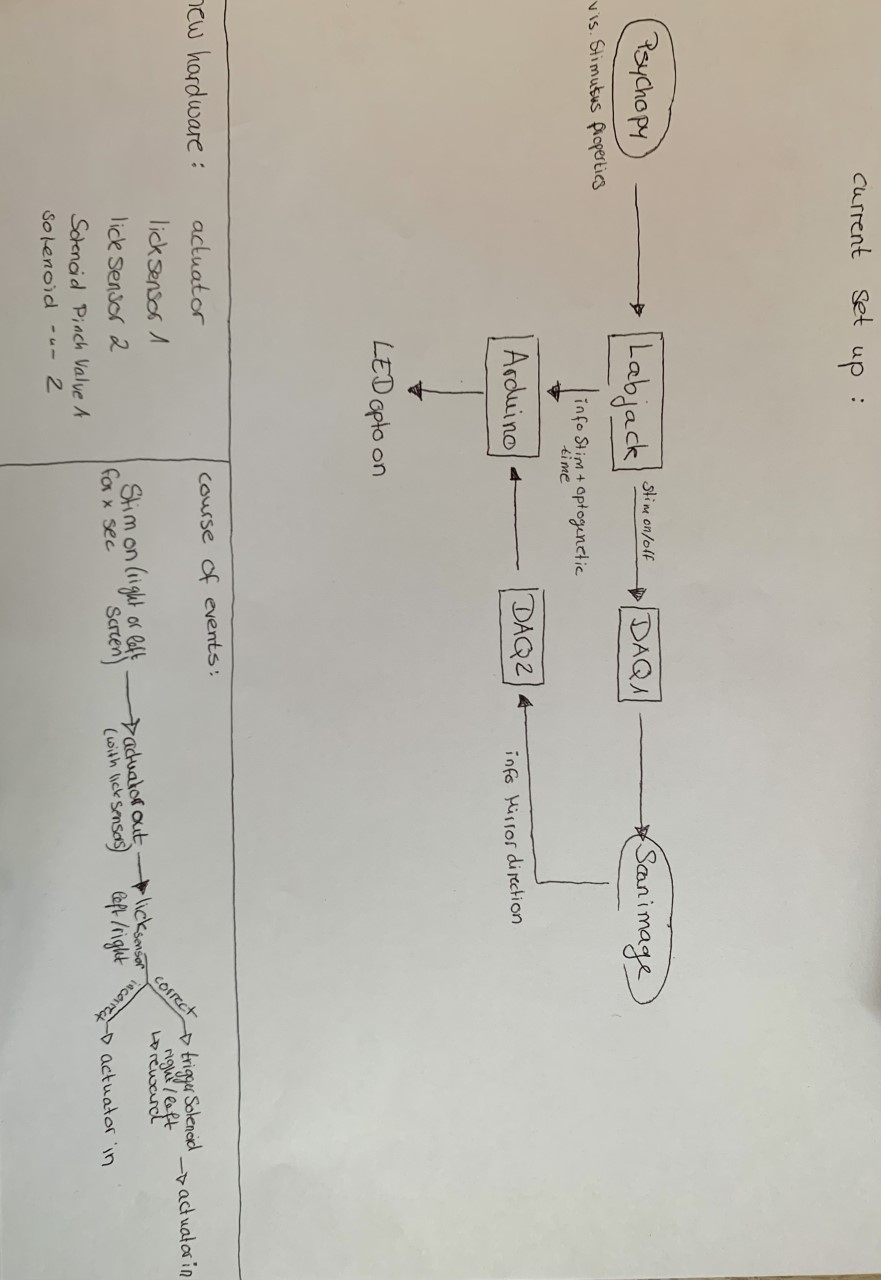 current set up :
Psychopy
vis. Stimulus properties
Labjack
Stim on/off
DAQ1
Scanimage
info Stim + optogenetic
time
Arduino
DAQ2
info Mirror direction
LED opto on
new hardware :
actuator
lick sensor 1
lick sensor 2
Solenoid Pinch Valve 1
solenoid -"- 2
course of events:
Stim on (right or left
for x sec screen)
actuator out
(with lick sensors)
lick sensor
left/right
correct
trigger Solenoid
right/left
↳ reward
actuator in
incorrect
actuator in